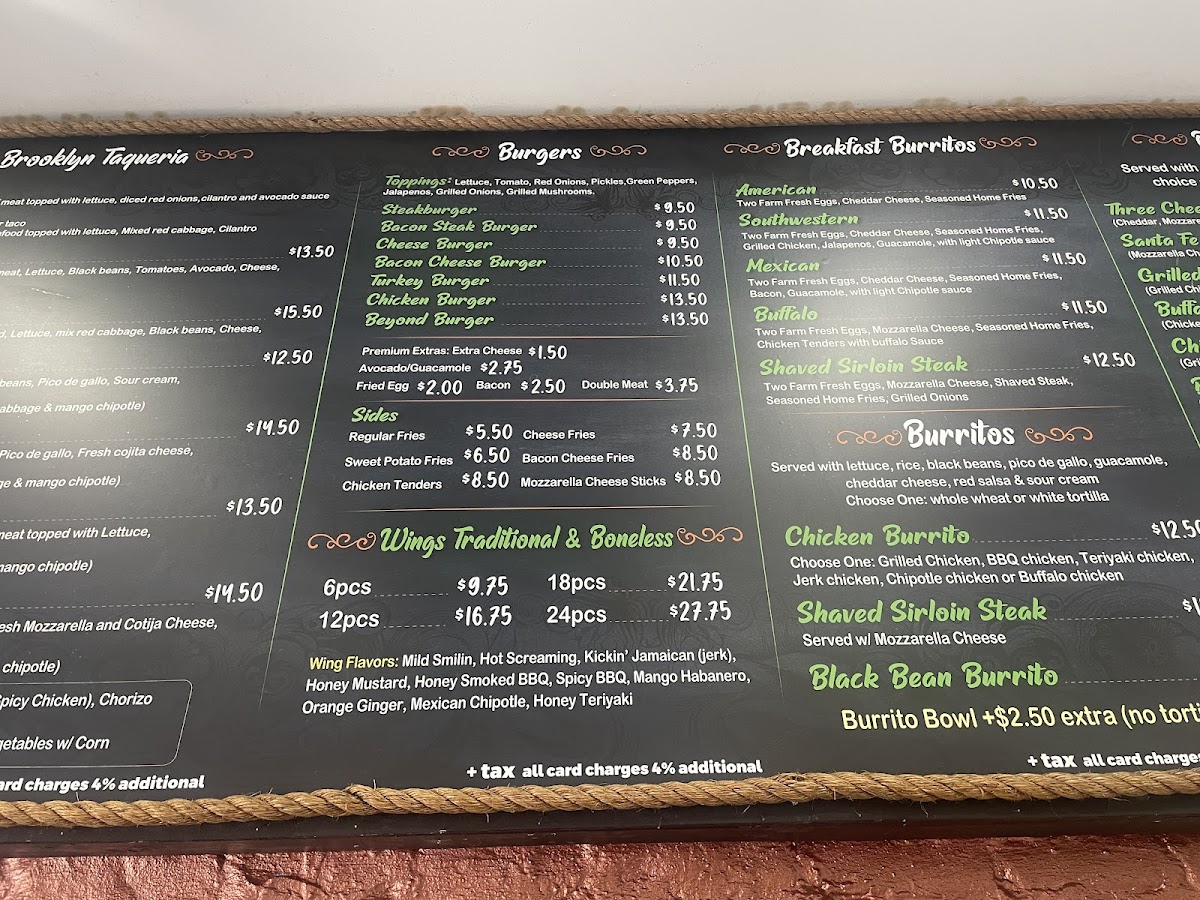 Brooklyn Taqueria
meat topped with lettuce, diced red onions,cilantro and avocado sauce
taco
topped with lettuce, Mixed red cabbage, Cilantro
$13.50
meat, Lettuce, Black beans, Tomatoes, Avocado, Cheese,
$15.50
Lettuce, mix red cabbage, Black beans, Cheese,
$12.50
beans, Pico de gallo, Sour cream,
& mango chipotle)
$14.50
Pico de gallo, Fresh cojita cheese,
& mango chipotle)
$13.50
meat topped with Lettuce,
mango chipotle)
$14.50
Mozzarella and Cotija Cheese,
chipotle)
Chicken), Chorizo
w/ Corn
charges 4% additional
Burgers
Toppings: Lettuce, Tomato, Red Onions, Pickles,Green Peppers,
Jalapenos, Grilled Onions, Grilled Mushrooms.
Steakburger $9.50
Bacon Steak Burger $9.50
Cheese Burger $9.50
Bacon Cheese Burger $10.50
Turkey Burger $11.50
Chicken Burger $13.50
Beyond Burger $13.50
Premium Extras: Extra Cheese $1.50
Avocado/Guacamole $2.75
Fried Egg $2.00 Bacon $2.50 Double Meat $3.75
Sides
Regular Fries $5.50 Cheese Fries $7.50
Sweet Potato Fries $6.50 Bacon Cheese Fries $8.50
Chicken Tenders $8.50 Mozzarella Cheese Sticks $8.50
Wings Traditional & Boneless
6pcs $9.75 18pcs $21.75
12pcs $16.75 24pcs $27.75
Wing Flavors: Mild Smilin, Hot Screaming, Kickin' Jamaican (jerk),
Honey Mustard, Honey Smoked BBQ, Spicy BBQ, Mango Habanero,
Orange Ginger, Mexican Chipotle, Honey Teriyaki
+ tax all card charges 4% additional
Breakfast Burritos
American $10.50
Two Farm Fresh Eggs, Cheddar Cheese, Seasoned Home Fries
Southwestern $11.50
Two Farm Fresh Eggs, Cheddar Cheese, Seasoned Home Fries,
Grilled Chicken, Jalapenos, Guacamole, with light Chipotle sauce
Mexican $11.50
Two Farm Fresh Eggs, Cheddar Cheese, Seasoned Home Fries,
Bacon, Guacamole, with light Chipotle sauce
Buffalo $11.50
Two Farm Fresh Eggs, Mozzarella Cheese, Seasoned Home Fries,
Chicken Tenders with buffalo Sauce
Shaved Sirloin Steak $12.50
Two Farm Fresh Eggs, Mozzarella Cheese, Shaved Steak,
Seasoned Home Fries, Grilled Onions
Burritos
Served with lettuce, rice, black beans, pico de gallo, guacamole,
cheddar cheese, red salsa & sour cream
Choose One: whole wheat or white tortilla
Chicken Burrito $12.50
Choose One: Grilled Chicken, BBQ chicken, Teriyaki chicken,
Jerk chicken, Chipotle chicken or Buffalo chicken
Shaved Sirloin Steak
Served w/ Mozzarella Cheese
Black Bean Burrito
Burrito Bowl +$2.50 extra (no
+ tax all card
Served with
choice
Three
(Cheddar,
Santa Fe
(Mozzarella
Grilled
(Grilled